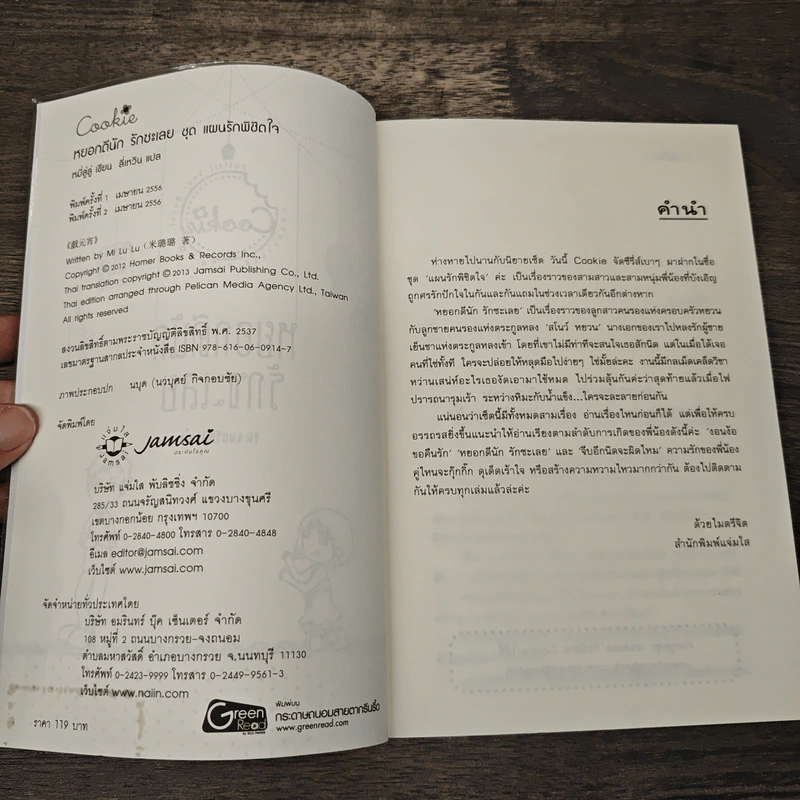 Cookie
หยอกดีนัก รักซะเลย ชุด แผนรักพิชิตใจ
หมี่ลู่ลู่ เขียน ลี่เหวิน แปล
พิมพ์ครั้งที่ 1 เมษายน 2556
พิมพ์ครั้งที่ 2 เมษายน 2556
《戲元宵》
Written by Mi Lu Lu (米璐璐 著)
Copyright © 2012 Homer Books & Records Inc.,
Thai translation copyright © 2013 Jamsai Publishing Co., Ltd.
Thai edition arranged through Pelican Media Agency Ltd., Taiwan
All rights reserved
สงวนลิขสิทธิ์ตามพระราชบัญญัติลิขสิทธิ์ พ.ศ. 2537
เลขมาตรฐานสากลประจำหนังสือ ISBN 978-616-06-0914-7
ภาพประกอบปก นบุต (นวบุศย์ กิจกอบชัย)
จัดพิมพ์โดย
แจ่มใส
jamsai
jamsai
ประทับใจคุณ
บริษัท แจ่มใส พับลิชชิ่ง จำกัด
285/33 ถนนจรัญสนิทวงศ์ แขวงบางขุนศรี
เขตบางกอกน้อย กรุงเทพฯ 10700
โทรศัพท์ 0-2840-4800 โทรสาร 0-2840-4848
อีเมล editor@jamsai.com
เว็บไซต์ www.jamsai.com
จัดจำหน่ายทั่วประเทศโดย
บริษัท อมรินทร์ บุ๊ค เซ็นเตอร์ จำกัด
108 หมู่ที่ 2 ถนนบางกรวย-จงถนอม
ตำบลมหาสวัสดิ์ อำเภอบางกรวย จ.นนทบุรี 11130
โทรศัพท์ 0-2423-9999 โทรสาร 0-2449-9561-3
เว็บไซต์ www.naiin.com
ราคา 119 บาท
Green
Read
พิมพ์บน
กระดาษถนอมสายตากรีนรี้ด
www.greenread.com
คำนำ
ห่างหายไปนานกับนิยายเซ็ต วันนี้ Cookie จัดซีรี่ส์เบาๆ มาฝากในชื่อ
ชุด 'แผนรักพิชิตใจ' ค่ะ เป็นเรื่องราวของสามสาวและสามหนุ่มพี่น้องที่บังเอิญ
ถูกศรรักปักใจในกันและกันแถมในช่วงเวลาเดียวกันอีกต่างหาก
'หยอกดีนัก รักซะเลย' เป็นเรื่องราวของลูกสาวคนรองแห่งครอบครัวหยวน
กับลูกชายคนรองแห่งตระกูลหลง 'สโนว์ หยวน' นางเอกของเราไปหลงรักผู้ชาย
เย็นชาแห่งตระกูลหลงเข้า โดยที่เขาไม่มีท่าทีจะสนใจเธอสักนิด แต่ในเมื่อได้เจอ
คนที่ใช่ทั้งที ใครจะปล่อยให้หลุดมือไปง่ายๆ ใช่มั้ยล่ะคะ งานนี้มีกลเม็ดเคล็ดวิชา
หว่านเสน่ห์อะไรเธองัดเอามาใช้หมด ไปร่วมลุ้นกันค่ะว่าสุดท้ายแล้วเมื่อไฟ
ปรารถนารุมเร้า ระหว่างหิมะกับน้ำแข็ง...ใครจะละลายก่อนกัน
แน่นอนว่าเซ็ตนี้มีทั้งหมดสามเรื่อง อ่านเรื่องไหนก่อนก็ได้ แต่เพื่อให้ครบ
อรรถรสยิ่งขึ้นแนะนำให้อ่านเรียงตามลำดับการเกิดของพี่น้องดังนี้ค่ะ 'งอนง้อ
ขอคืนรัก' 'หยอกดีนัก รักซะเลย' และ 'จีบอีกนิดจะผิดไหม' ความรักของพี่น้อง
คู่ไหนจะกุ๊กกิ๊ก ดุเด็ดเร้าใจ หรือสร้างความหวามไหวมากกว่ากัน ต้องไปติดตาม
กันให้ครบทุกเล่มแล้วล่ะค่ะ
ด้วยไมตรีจิต
สำนักพิมพ์แจ่มใส